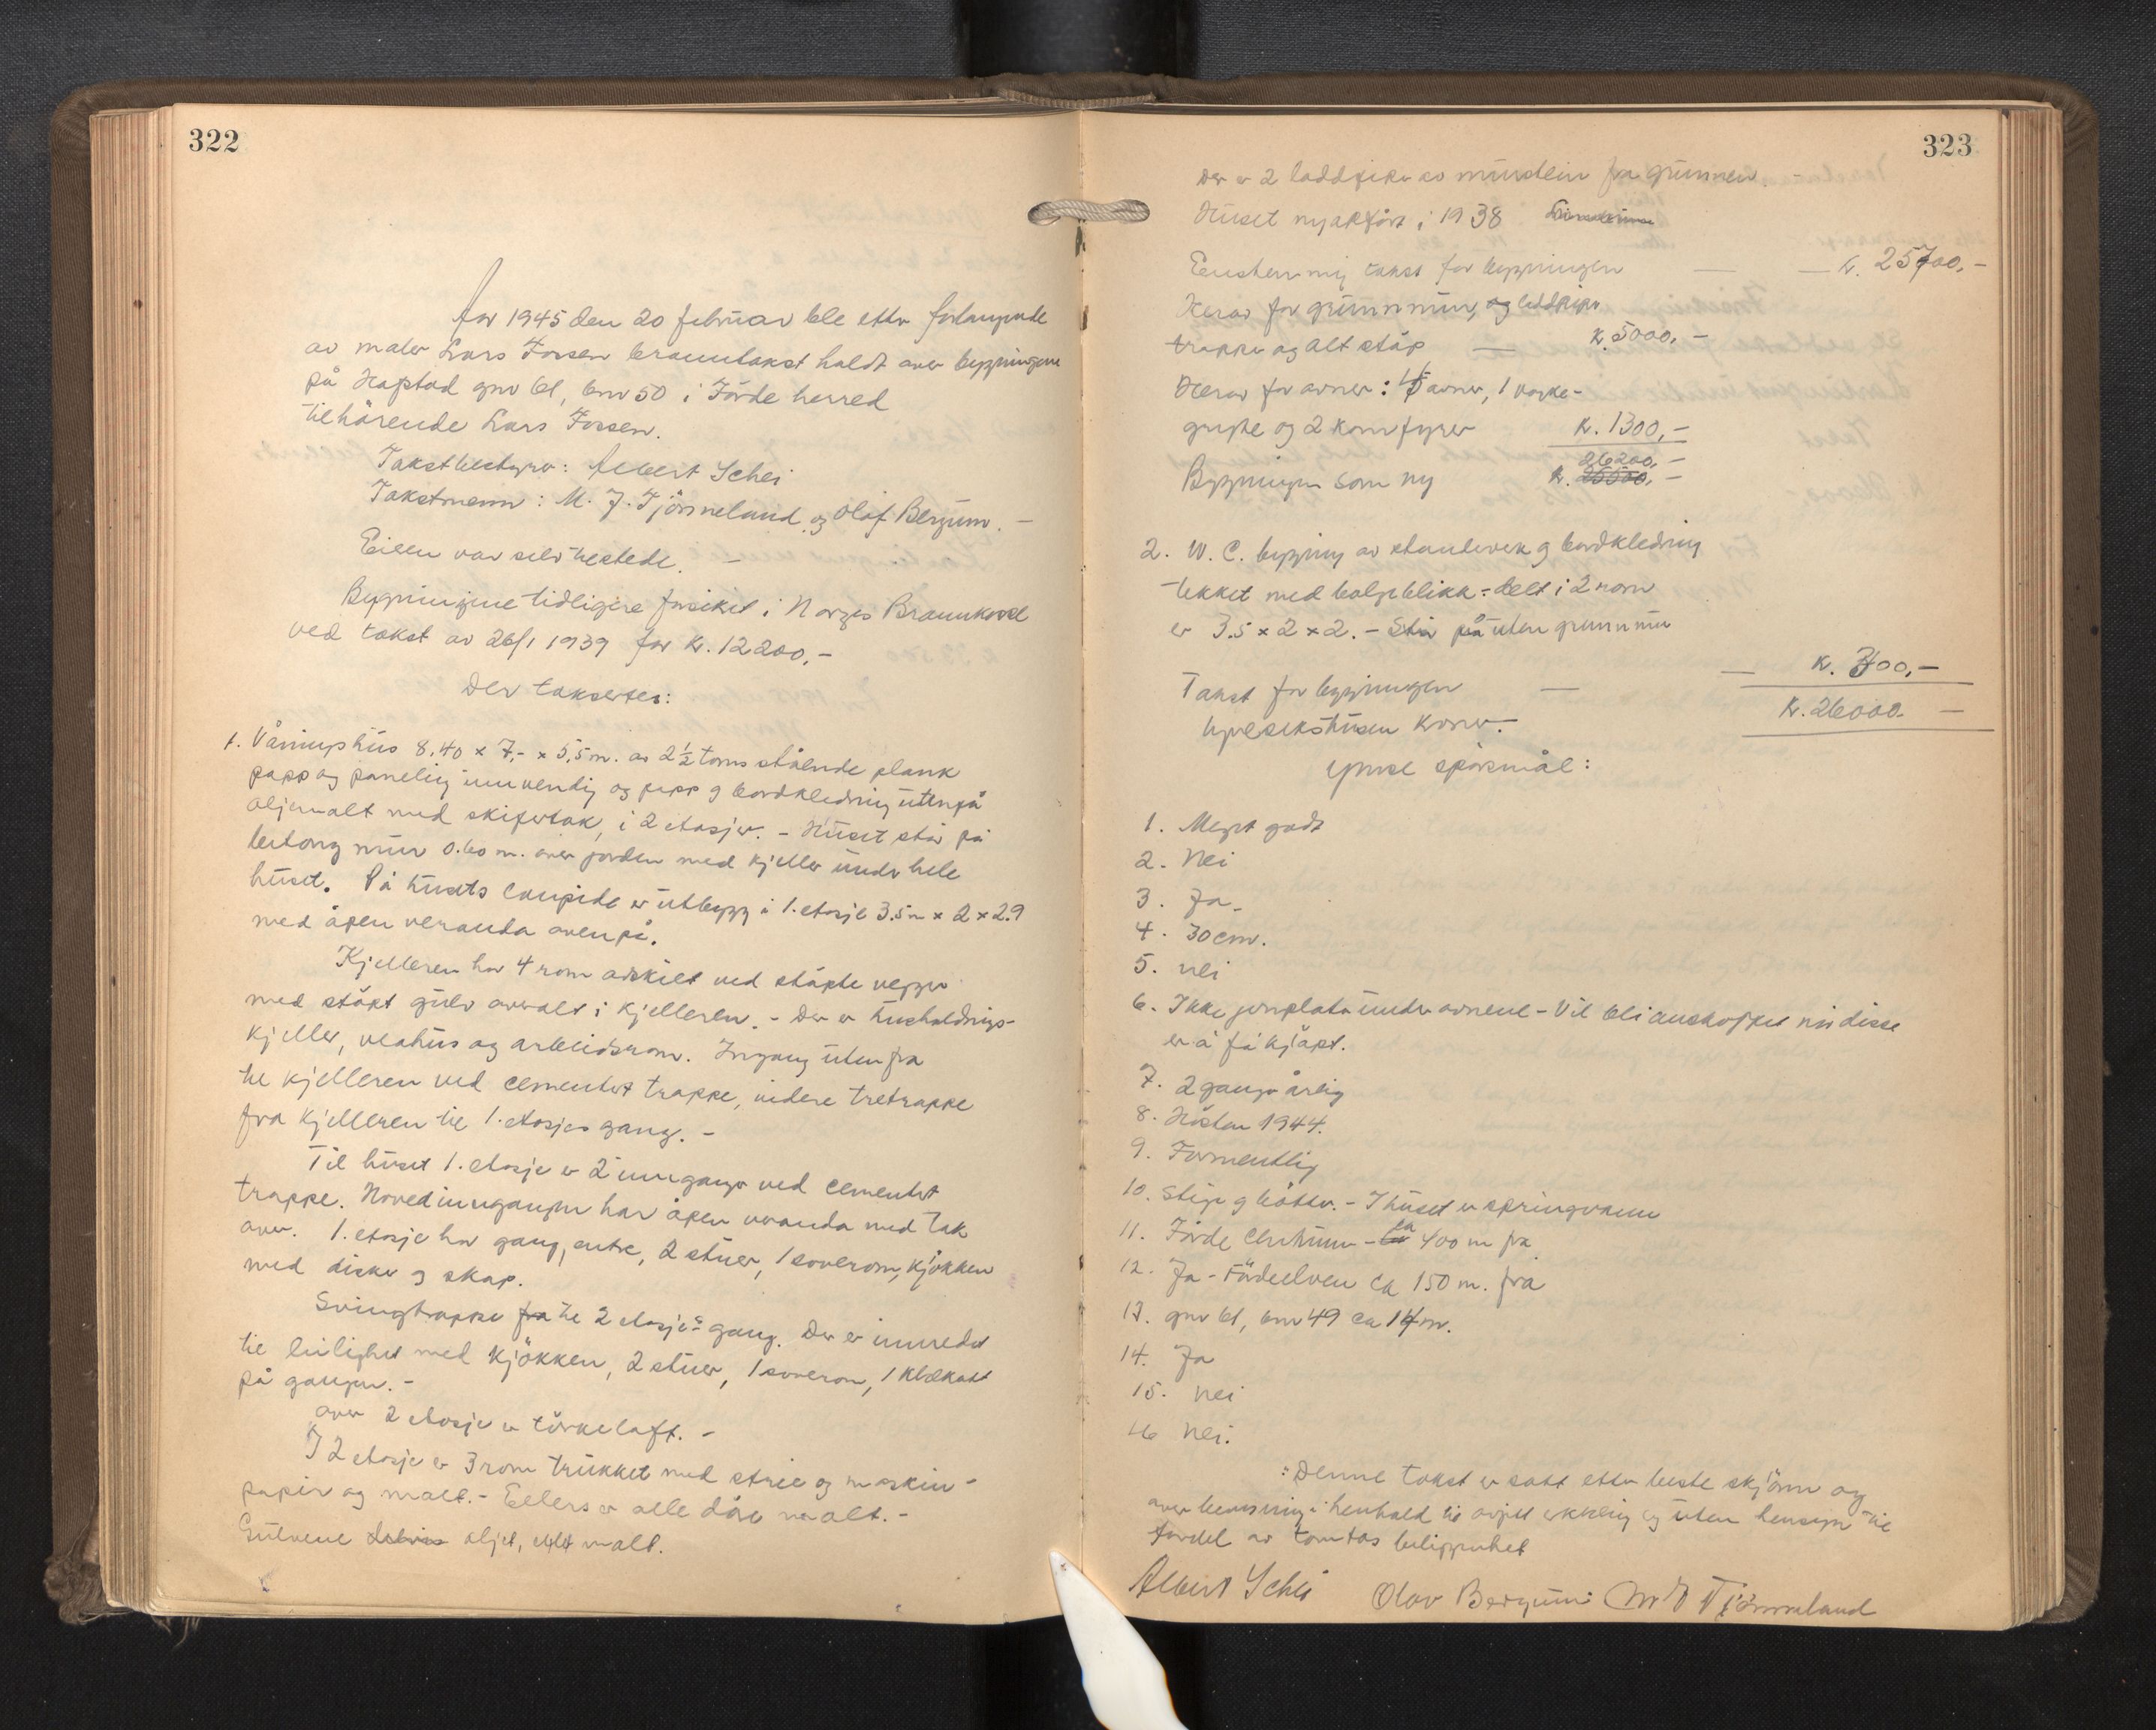 322
År 1945 den 20 februar ble etter forlangende
av maler Lars Fossen branntakst holdt over bygningene
på Hafstad gnr 61, bnr 50 i Førde herred
tilhörende Lars Fossen.
Takstbestyrer: Albert Schei
Takstmenn: M. J. Tjönneland og Olaf Bergum. –
Eieren var selv tilstede. –
Bygningene tidligere forsikret i Norges Brannkasse
ved takst av 26/1 1939 for kr. 12200,-
Der takseres:
1. Våningshus 8.40 x 7,- x 5,5 m. av 2½ toms stående plank
papp og paneling innvendig og papp og bordkledning utenpå
oljemalt med skifertak, i 2 etasjer. – Huset står på
betong mur 0.60 m. over jorden med kjeller under hele
huset. På husets langside er utbygg i 1. etasje 3.5 m x 2 x 2.9
med åpen veranda ovenpå.
Kjelleren har 4 rom avskilt ved stöpte vegger
med stöpt gulv overalt i kjelleren. – Der er husholdnings-
kjeller, vedhus og arbeidsrom. Inngang utenfra
til kjelleren ved cementert trappe, videre tretrappe
fra kjelleren til 1. etasjes gang. –
Til huset 1. etasje er 2 innganger ved cementert
trappe. Hovedinngangen har åpen veranda med tak
over. 1. etasje har gang, entre, 2 stuer, 1 soverom, kjökken
med diske og skap.
Svingtrappe fra til 2 etasjes gang. Der er innredet
til leilighet med kjökken, 2 stuer, 1 soverom, 1 klekott
på gangen. –
Over 2 etasje er törkeloft. –
I 2 etasje er 3 rom trukket med strie og maskin-
papir og malt. – Ellers er alle dåe malt. –
Gulvene delvis oljet, malt.
323
Der er 2 loddpiper av murstein fra grunnen. –
Huset nyoppfört i 1938
takst for bygningen — — kr. 25700,-
Herav for grunnmur, og loddpiper
trapper og alt stöp — kr. 5000,-
Herav for ovner: 5 ovner, 1 vaske-
gryte og 2 komfyrer kr. 1300,-
26200,-
Bygningen som ny kr. 25500,-
2. W. C. bygning av stenderverk og bordkledning
tekket med bølgeblikk – delt i 2 rom
er 3.5 x 2 x 2. – Står på uten grunnmur
Takst for bygningen — — kr. 300,-
kr. 26000. —
Ymse spörsmål:
1. Meget godt
2. Nei
3. Ja.
4. 30 cm.
5. nei
6. Ikke jernplate under ovnene – Vil bli anskaffet når disse
er å få kjöpt.
7. 2 ganger årlig
8. Hösten 1944.
9. Formentlig
10. Stige og bötter. – I huset er springvann
11. Förde – ca 400 m fra
12. Ja – Fördeelven ca 150 m. fra
13. gnr 61, bnr 49 ca 14 m.
14. Ja
15. nei
16 nei.
Denne takst er satt etter beste skjönn og
overbevisning i henhold til avgitt erklering og uten hensyn til
fordel av tomtas beliggenhet
Albert Schei Olav Bergum M J Tjönneland